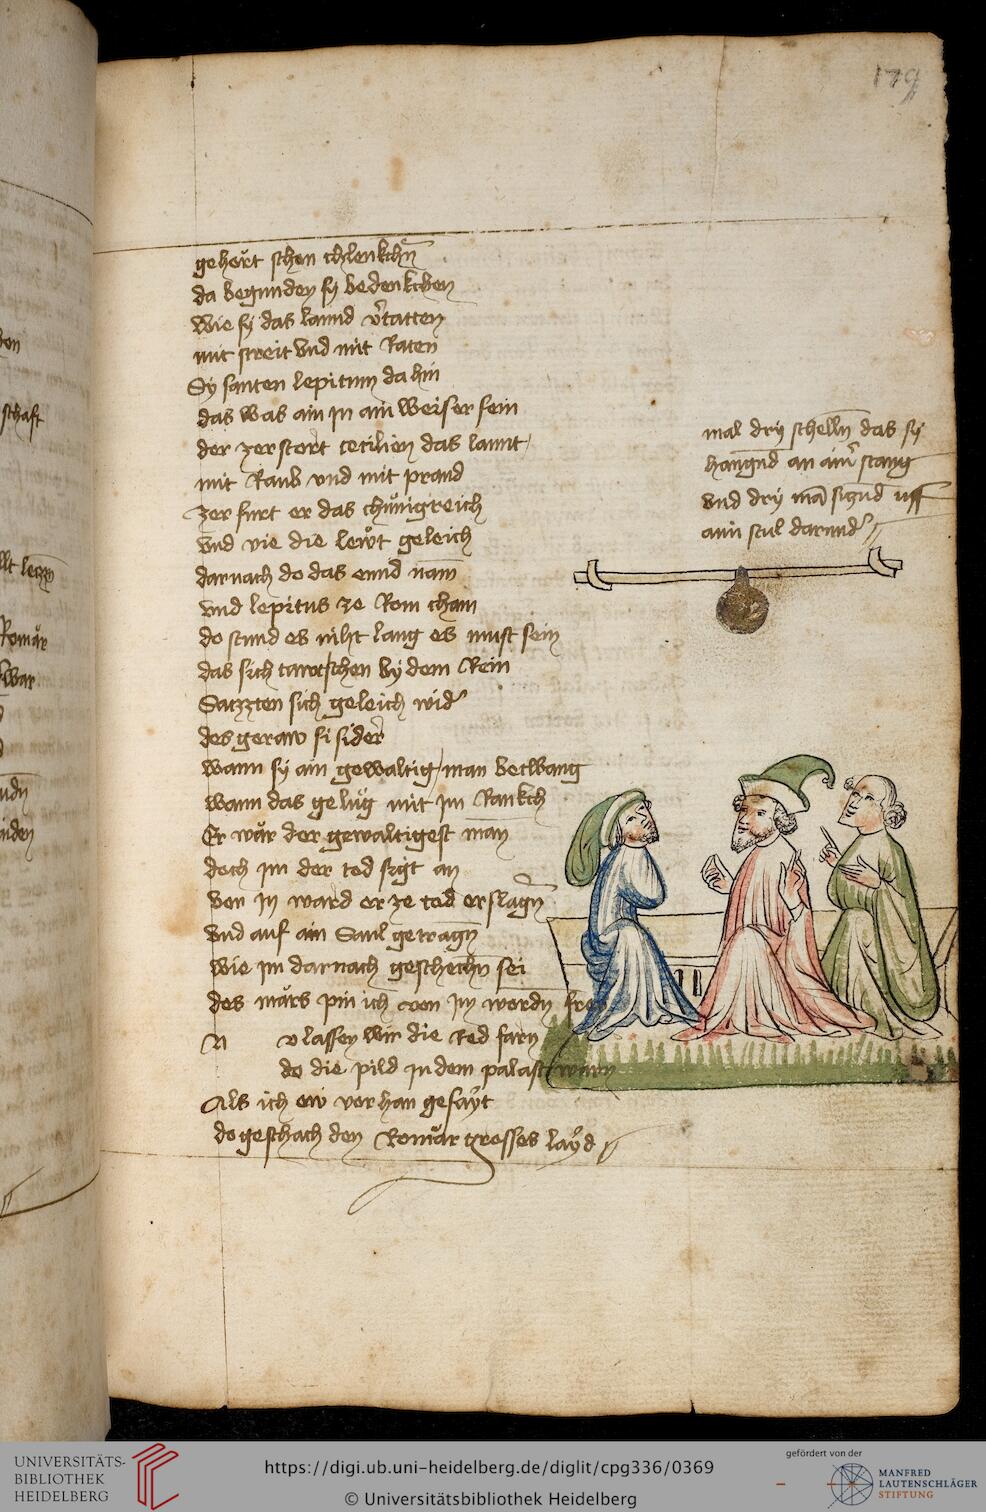 179
gehört schon chlenkchn̄
da begunden sy bedenkchen
Wie sy das lannd v̄tatten
mit streit vnd mit Raten
Sy santen lepitum da hin
das was ain jn ain weiser sein
der zerstort cecilien das lannt
mit Raub vnd mit prand
zer fuert er das chünigreich
vnd vie die lewt geleich
darnach do das ennd nam
vnd lepitus ze Rom cham
do stund es niht lang es must sein
das sich tawtschen by dem Rein
Satzzten sich geleich wid̄
des geraw si sider
wann sy ain gewaltig man betwang
wann das gelüg mit jm Rankch
Er wär der gewaltigest man
doch jm der tod sigt an
von jn ward er ze tod erslagn̄
vnd auf ain Saul getragn
wie jm darnach geschechn sei
des märs pin ich von jm wordn frey
N v lassen wir die Red farn
do die pild jn dem palast warn
Als ich ew vor han gesayt
do geschach den Romär grosses layd
mal dry schelln̄ das sy
hangnd an aim̄ stang
vnd dry mā siznd uff
aim stul darund̄
schaft
Romär
UNIVERSITÄTS-
BIBLIOTHEK
HEIDELBERG
https://digi.ub.uni-heidelberg.de/diglit/cpg336/0369
© Universitätsbibliothek Heidelberg
gefördert von der
MANFRED
LAUTENSCHLÄGER
STIFTUNG